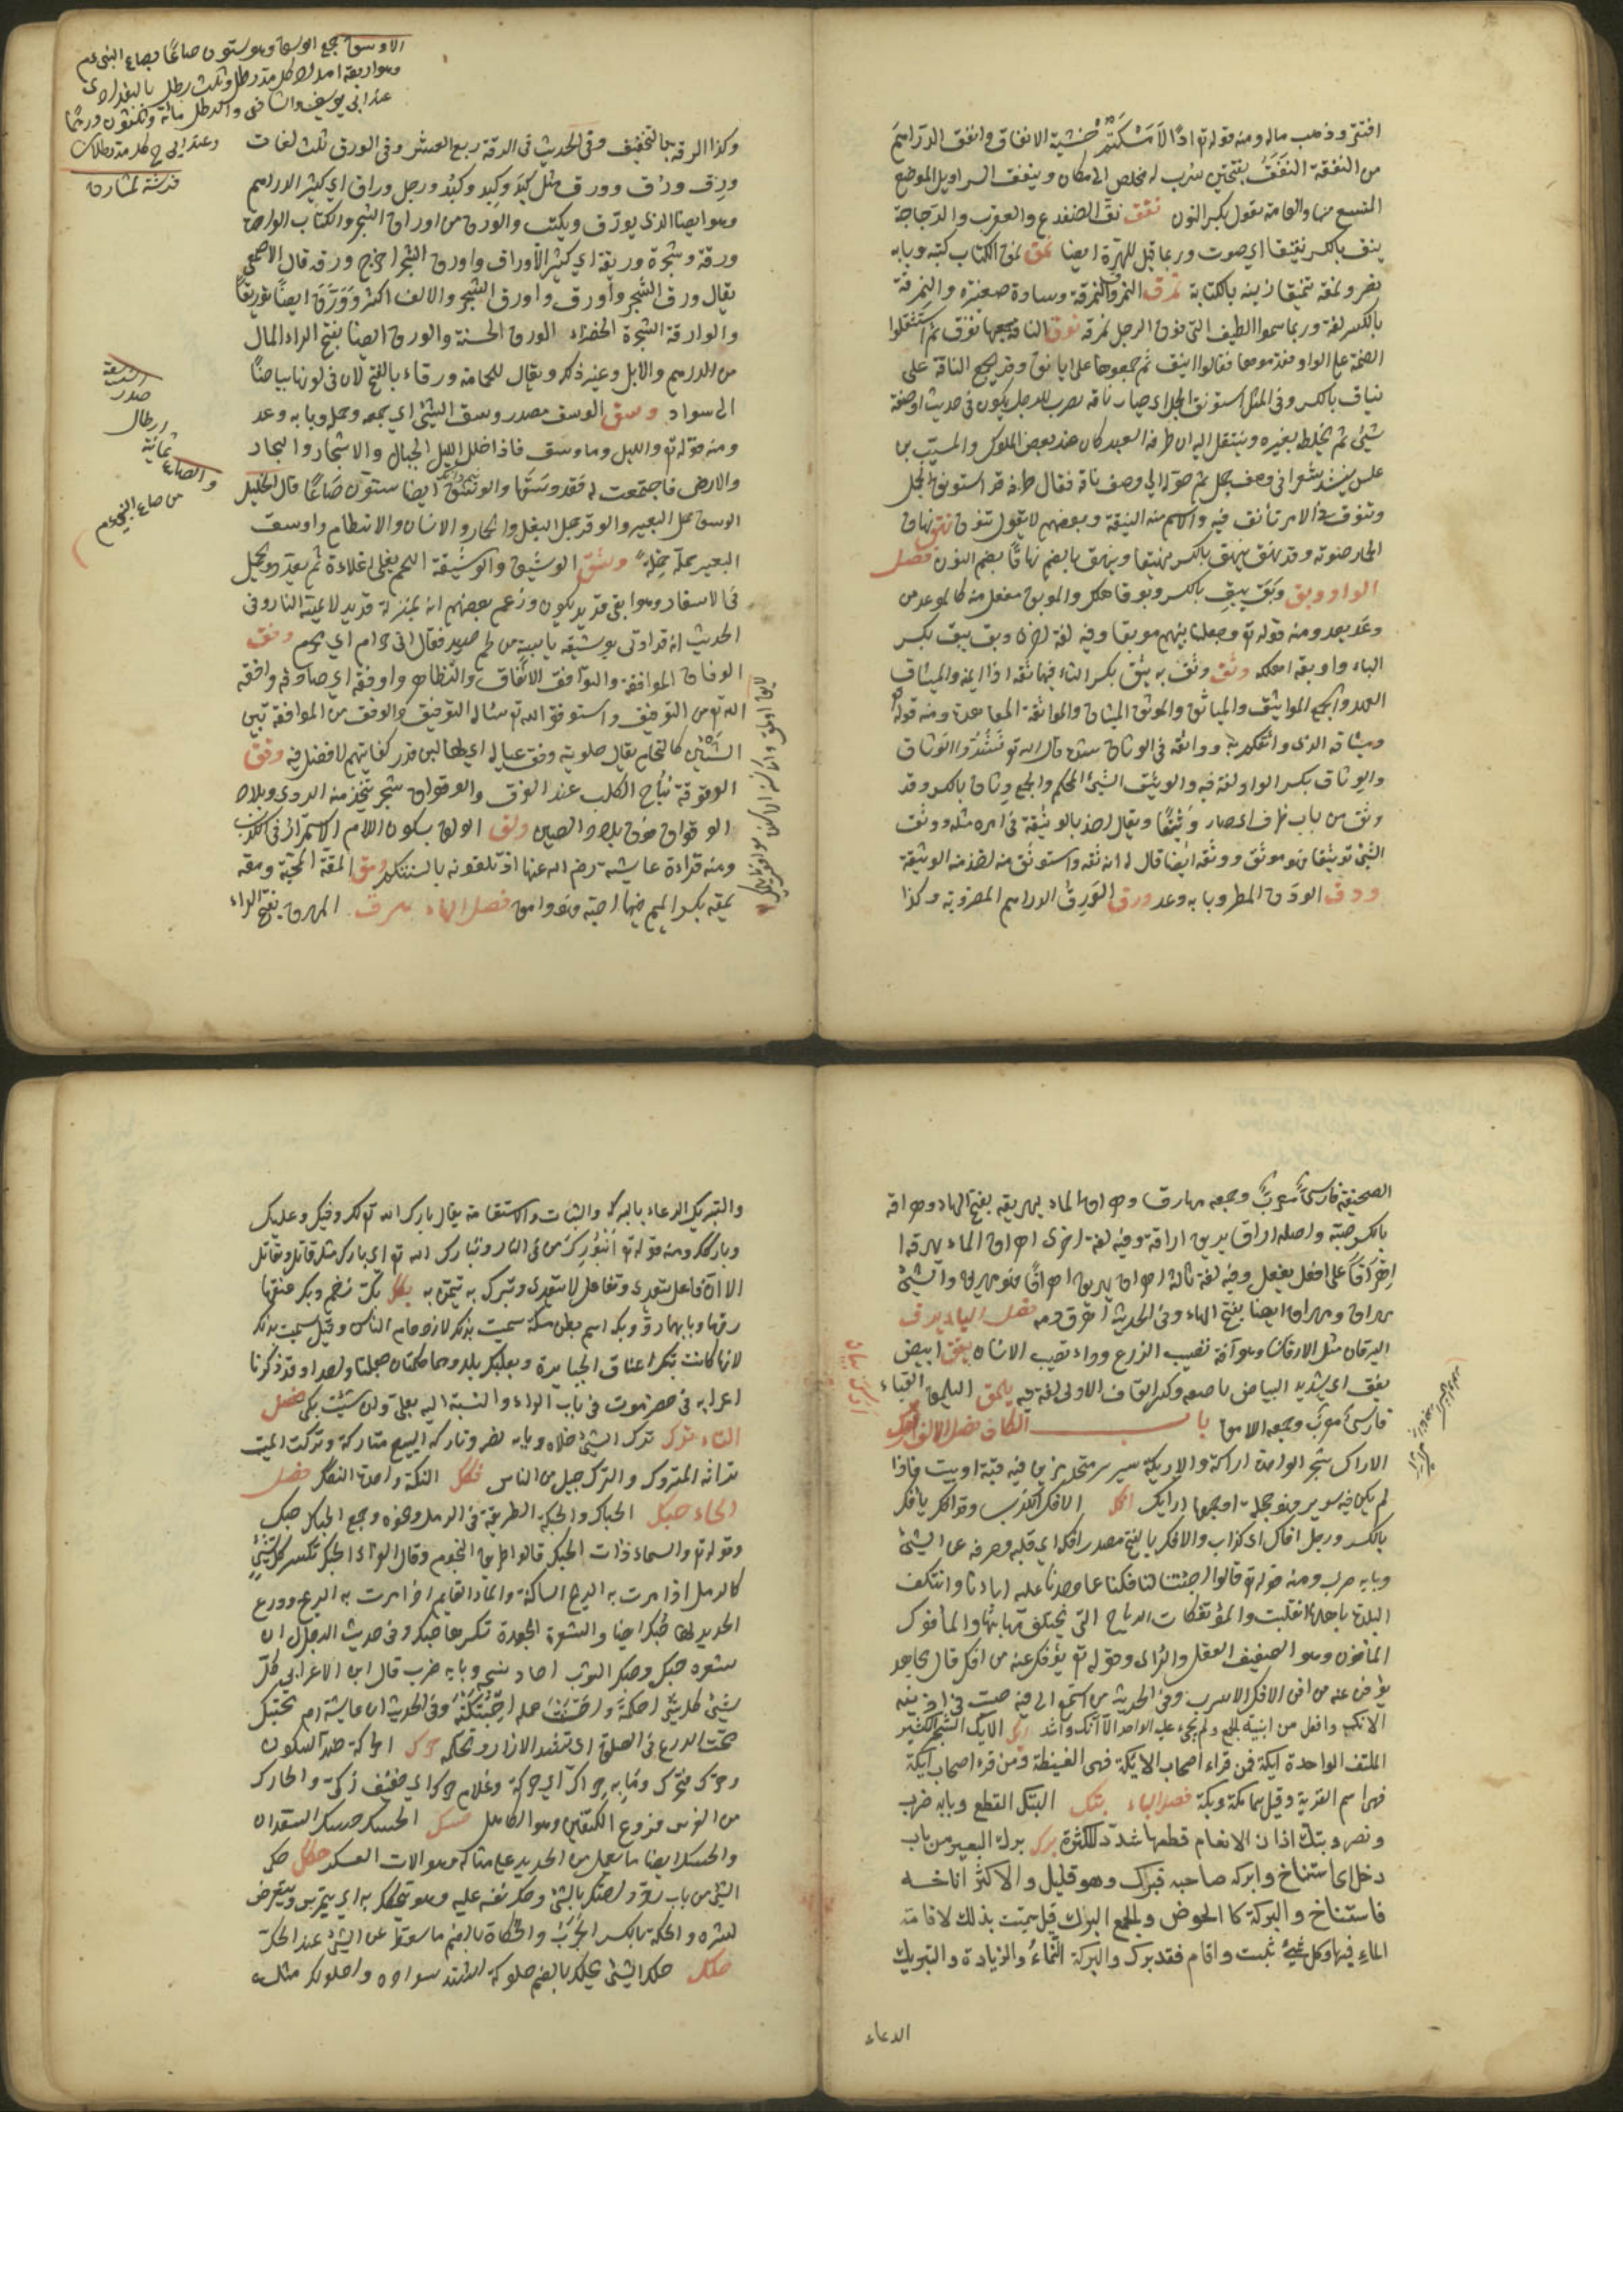 افتقر وذهب ماله ومنه قوله تع اذًا لَاَمْسَكْتُمْ خَشْيَةَ الانفاق وانفق الدراهم
من النفقة النَفَقَ بفتحتين سَرَب له مخلص الى مكان ونيفق السراويل الموضع
المتسع منها والعامة تقول بكسر النون نقق نقّ الضفدع والعقرب والدجاجة
ينق بالكسر نقيقا اي صوت وربما قيل للهرّة ايضا نمق نمق الكتاب كتبه وبابه
نصر ونمقه تنميقا زينه بالكتابة نمرق النمرق والنمرقة وسادة صغيرة والنمرقة
بالكسر لغة وربما سموا الطنفسة التى فوق الرحل نمرقة نوق الناقة جمعها نوق ثم استثقلوا
الضمة على الواو فقدموها فقالوا اينق ثم جمعوها على ايانق وقد تجمع الناقة على
نياق بالكسر وفى المثل استنوق الجمل اى صار ناقة يضرب للرجل يكون فى حديث او صفة
شيئ ثم يخلطه بغيره وينتقل اليه ان طرفة العبد كان عند بعض الملوك والمسيّب بن
علس ينشد شعرا فى وصف جمل ثم حوّله الى وصف ناقة فقال طرفة قد استنوق الجمل
وتنوق فى الامر تأنق فيه والاسم منه النيقة وبعضهم لا يقول تنوق نهق نهاق
الحمار صوته وقد نهق ينهق بالكسر نهيقا وينهق بالضم نهاقا بضم النون فصل
الواو وبق وَبَقَ يبِق بالكسر وبوقا هلك والموبق مفعل منه كالموعد من
وعَد يعد ومنه قوله تع وجعلنا بينهم موبقا وفيه لغة اخرى وبق يبق بكسر
الباء واوبقه اهلكه وثق وثق به يثق بكسر الثاء فيهما ثقة اذا ائتمنه والميثاق
العهد والجمع المواثيق والمياثق والموثق الميثاق والمواثقة المعاهدة ومنه قوله تع
وميثاقه الذى واثقكم به واوثقه فى الوثاق شدّه قال الله تع فَشُدُّوا الوَثاق
والوِثاق بكسر الواو لغة فيه والوثيق الشيئ المحكم والجمع وِثاق بالكسر وقد
وثق من باب ظرف اى صار وَثيقًا ويقال اخذ بالوثيقة فى امره مثله ووثق
الشيئ توثيقا فهو موثق ووثقه ايضا قال له انه ثقة واستوثق منه اخذ منه الوثيقة
ودق الودْق المطر وبابه وعد ورق الوَرِق الدراهم المضروبة وكذا
الاوسق جمع الوسق وهو ستون صاعًا بصاع النبى عم
وهو اربعة امداد كل مدّ رطل وثلث رطل بالبغدادى
عند ابى يوسف والشافعى والرطل مائة وثلثون درهما
وعند ابى ح كل مدّ رطلان
فرشته لمشارق
وكذا الرقة بالتخفيف وفى الحديث فى الرقة ربع العشر وفى الورق ثلث لغات
ورِق ووِرْق وورق مثل كَبِد وكِبْد وكَبْد ورجل وراق اى كثير الدراهم
وهو ايضا الذى يورّق ويكتب والورق من اوراق الشجر والكتاب الواحدة
ورقة وشجرة وريقة اى كثير الاوراق واورق الشجر اخرج ورقه قال الاصمعى
يقال ورق الشجر واورق واورق الشجر والالف اكثر ووَرّقَ ايضًا توريقًا
والوارقة الشجرة الخضراء الورق الحسنة والورق ايضا بفتح الراء المال
من الدراهم والابل وغير ذلك ويقال للحمامة ورقاء بالفتح لان فى لونها بياضًا
الى سواد وسق الوسق مصدر وسق الشيئ اى جمعه وحمله وبابه وعد
ومنه قوله تع والليل وما وسق فاذا جلل الليل الجبال والاشجار والبحار
والارض فاجتمعت له فقد وسَقَها والوَسْق ايضا ستون صَاعًا قال الخليل
الوسق حمل البعير والوقر حمل البغل والحمار والاتساق الانتظام واوسق
البعير حمله حِمْلَه وشق الوشيق والوشيقة اللحم يغلى اغلاءة ثم يقدد ويحمل
فى الاسفار وهو ابقى قديد يكون وزعم بعضهم انه بمنزلة قديد لا تمسّه النار وفى
الحديث انه قد اوتى بوشيقة يابسة من لحم صيد فقال انى حرام اى محرم وفق
الوفاق الموافقة والتوافق الاتفاق والتظاهر ووافقه اى صادفه ووافقه
الله تع من التوفيق واستوفق الله تع سئاله التوفيق والوفق من الموافقة بين
الشيئين كالتحام يقال حلوبته وفق عياله اى لها لبن قدر كفايتهم لا فضل فيه وقق
الوقوقة نباح الكلب عند الفرق والوقواق شجر يتخذ منه الدوى وبلاد
الوقواق فوق بلاد الصين ولق الولق بسكون اللام الاستمرار فى الكذب
ومنه قراءة عايشة رضى الله عنها اذ تَلِقونه بالسنتكم ومق المقة المحبة ومقه
يمقه بكسر الميم فيهما احبه فهو وامق فصل الهاء هرق المهرق بفتح الراء
السَّعَة
صدر
ارطال
ثمانية
والصاع
من صاع النبى عم
الصحيفة فارسىّ معرّب وجمعه مهارق وهراق الماء يهريقه بفتح الهاء وهراقة
بالكسر صبّه واصله اراق يريق اراقة وفيه لغة اخرى اهرق الماء يهرقه ا
اِهْرَاقًا على افعل يفعل وفيه لغة ثالثة اهراق يهريق اهراقًا فهو مهريق والشيئ
مهراق ومهراق ايضا بفتح الهاء وفى الحديث اُهْرِقَ دمه فصل الياء يرق
اليرقان مثل الارقان وهو آفة تصيب الزرع وداء تصيب الانسان يقق ابيض
يقق اى شديد البياض ناصعه وكسر القاف الاولى لغة فيه يلمق اليلمق القباء
فارسىّ معرّب وجمعه اليلامق باب الكاف فصل الالف ارك
الاراك شجر الواحدة اراكة والاريكة سرير متخذ مزين فى قبة او بيت فاذا
لم يكن فيه سرير فهو حجلة وجمعها ارائك افك الافك الكذب وقد افك يأفك
بالكسر ورجل افاك اى كذاب والافك بالفتح مصدر افكه اى قلبه وصرفه عن الشيئ
وبابه ضرب ومنه قوله تع قالوا اجئتنا لتافكنا عما وجدنا عليه اباءنا وائتفكت
البلدة باهلها انقلبت والمؤتفكات الرياح التى تختلف مهابّها والمأفوك
المأفون وهو الضعيف العقل والرأى وقوله تع يؤفك عنه من افك قال مجاهد
يؤفن عنه من افن الانك الاسرب وفى الحديث من استمع الى قينة صبّ فى اذنيه
الانك وافعل من ابنية الجمع ولم يجئ عليه الواحد الا آنك واشد ايك الايك الشجر الكثير
الملتف الواحدة ايكة فمن قراء اصحاب الايكة فهى الغيضة ومن قرء اصحاب ليكة
فهى اسم القرية وقيل هما مكة وبكة فصل الباء بتك البتك القطع وبابه ضرب
ونصر وبتك اذان الانعام قطعها شدّد للكثرة برك برك البعير من باب
دخل اى استناخ وابركه صاحبه فبرك وهو قليل والاكثر اناخـه
فاستناخ والبركة كا الحوض والجمع البرك قيل سمّيت بذلك لاقامة
الماء فيها وكل شيئ ثبت واقام فقد برك والبركة النّماء والزيادة والتبريك
الدعاء
والتبريك الدعاء بالبركة والثبات والاستقامة يقال بارك الله تع لك وفيك وعليك
وباركك ومنه قوله تع اَنْ بُورِكَ من فى النار وتبارك الله تع اى بارك مثل قاتل وتقاتل
الا ان فاعل يتعدى وتفاعل لا يتعدى وتبرك به تيمّن به بكك بكّ زحم وبكّ عنقها
دقها وبابهما ردّ وبكة اسم بطن مكة سميت بذلك لازدحام الناس وقيل سميت بذلك
لانها كانت تبك اعناق الجبابرة وبعلبك بلد وهما كلمتان جعلتا واحدا وقد ذكرنا
اعرابه فى حضرموت فى باب الراء والنسبة اليه بعلى وان شئت بكى فصل
التاء ترك ترك الشيئ خلاه وبابه نصر وتاركه البيع متاركة وتركت الميت
تراثه المتروك والترك جيل من الناس تكك التكة واحدة التكك فصل
الحاء حبك الحباك والحبيكة الطريقة فى الرمل ونحوه وجمع الحباك حبك
وقوله تع والسماء ذات الحبك قالوا طرايق النجوم وقال الفراء الحبك تكسر كل شيئ
كالرمل اذا مرت به الريح الساكنة والماء القايم اذا مرت به الريح ودرع
الحديد لها حُبك ايضا والشعرة الجعدة تكسرها حبك وفى حديث الدجال ان
شعره حبك وحبك الثوب اجاد نسجه وبابه ضرب قال ابن الاعرابى كلّ
شيئ احكمته واحسنت عمله احتبكته وفى الحديث ان عايشة رض تحتبك
تحت الدرع فى الصلوة اى تشد الازار وتحكمه حرك الحركة ضد السكون
وحركه فتحرك وما به حراك اى حركة وغلام حرك اى خفيف ذكىّ والحارك
من الفرس فروع الكتفين وهو الكاهل حسك الحسك حسك السعدان
والحسك ايضا ما يعمل من الحديد على مثاله وهو الات العسكر حكك حك
الشيئ من باب ردّ واحتك بالشيئ وحك نفسه عليه وهو يتحكك به اى يتمرس ويتعرض
لشره والحكة بالكسر الجَرَب والحكاكة بالضم ما سقط عن الشيئ عند الحك
حلك حلك الشيئ يحلك بالضم حلوكة اشتد سواده واحلولك مثله